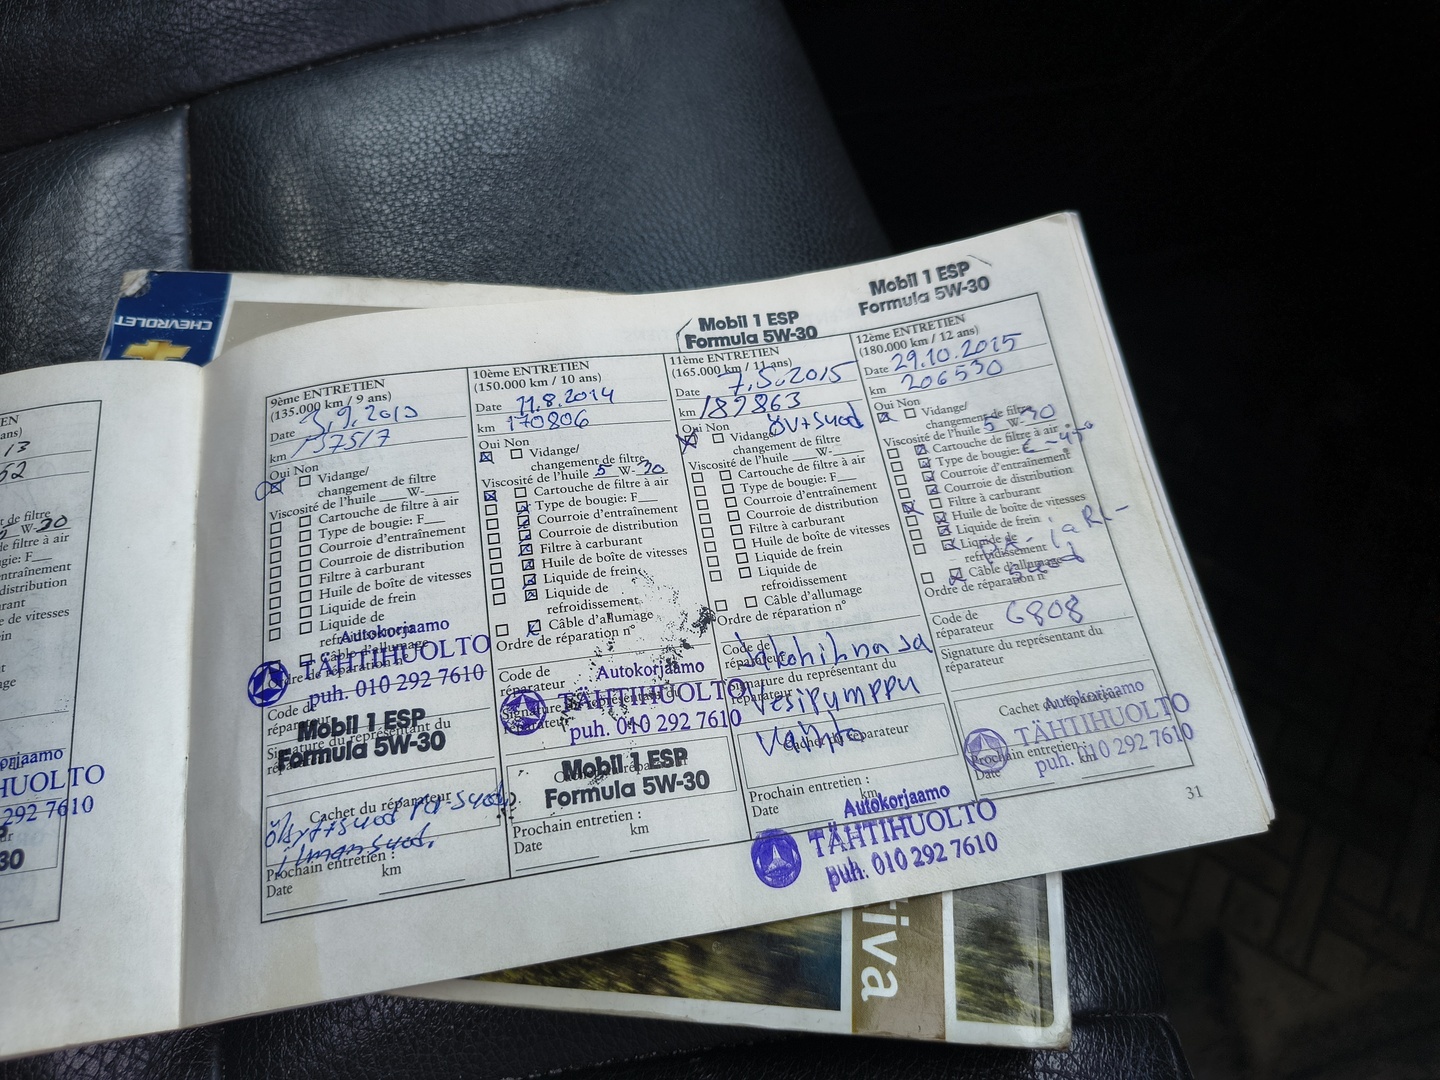 CHEVROLET
EN
ans)
13
52
nt de filtre
W-30
e filtre à air
gie: F
entraînement
distribution
rant
e vitesses
ein
age
Autokorjaamo
HUOLTO
292 7610
30
9ème ENTRETIEN
(135.000 km / 9 ans)
Date 3.9.2013
km 157517
Oui Non
Vidange/
changement de filtre
Viscosité de l'huile W-
Cartouche de filtre à air
Type de bougie: F
Courroie d'entraînement
Courroie de distribution
Filtre à carburant
Huile de boîte de vitesses
Liquide de frein
Liquide de
refroidissement
Câble d'allumage
Ordre de réparation n°
Autokorjaamo
TÄHTIHUOLTO
puh. 010 292 7610
Code de
réparateur
Mobil 1 ESP
Formula 5W-30
Signature du représentant du
Cachet du réparateur
ilmansuod.
Prochain entretien :
Date km
10ème ENTRETIEN
(150.000 km / 10 ans)
Date 11.8.2014
km 170806
Oui Non
Vidange/
changement de filtre
Viscosité de l'huile 5 W-30
Cartouche de filtre à air
Type de bougie: F
Courroie d'entraînement
Courroie de distribution
Filtre à carburant
Huile de boîte de vitesses
Liquide de frein
Liquide de
refroidissement
Câble d'allumage
Ordre de réparation n°
Code de
réparateur
Autokorjaamo
TÄHTIHUOLTO
puh. 010 292 7610
Signature du représentant du
Mobil 1 ESP
Formula 5W-30
Prochain entretien :
Date km
Mobil 1 ESP
Formula 5W-30
11ème ENTRETIEN
(165.000 km / 11 ans)
Date 7.5.2015
km 187863
Oui Non
Vidange/ öv+suod
changement de filtre
Viscosité de l'huile W-
Cartouche de filtre à air
Type de bougie: F
Courroie d'entraînement
Courroie de distribution
Filtre à carburant
Huile de boîte de vitesses
Liquide de frein
Liquide de
refroidissement
Câble d'allumage
Ordre de réparation n°
Code de
réparateur
jakohihna sa
Signature du représentant du
réparateur
vesipumppu
Cachet du réparateur
vaihto
Prochain entretien :
Date km
Autokorjaamo
TÄHTIHUOLTO
puh. 010 292 7610
Mobil 1 ESP
Formula 5W-30
12ème ENTRETIEN
(180.000 km / 12 ans)
Date 29.10.2015
km 206530
Oui Non
Vidange/
changement de filtre
Viscosité de l'huile 5 W-30
Cartouche de filtre à air
Type de bougie: F
Courroie d'entraînement
Courroie de distribution
Filtre à carburant
Huile de boîte de vitesses
Liquide de frein
Liquide de
refroidissement
Câble d'allumage
Ordre de réparation n°
Code de
réparateur 6808
Signature du représentant du
réparateur
Cachet du réparateur
Autokorjaamo
TÄHTIHUOLTO
puh. 010 292 7610
Prochain entretien :
Date km
31
tiva